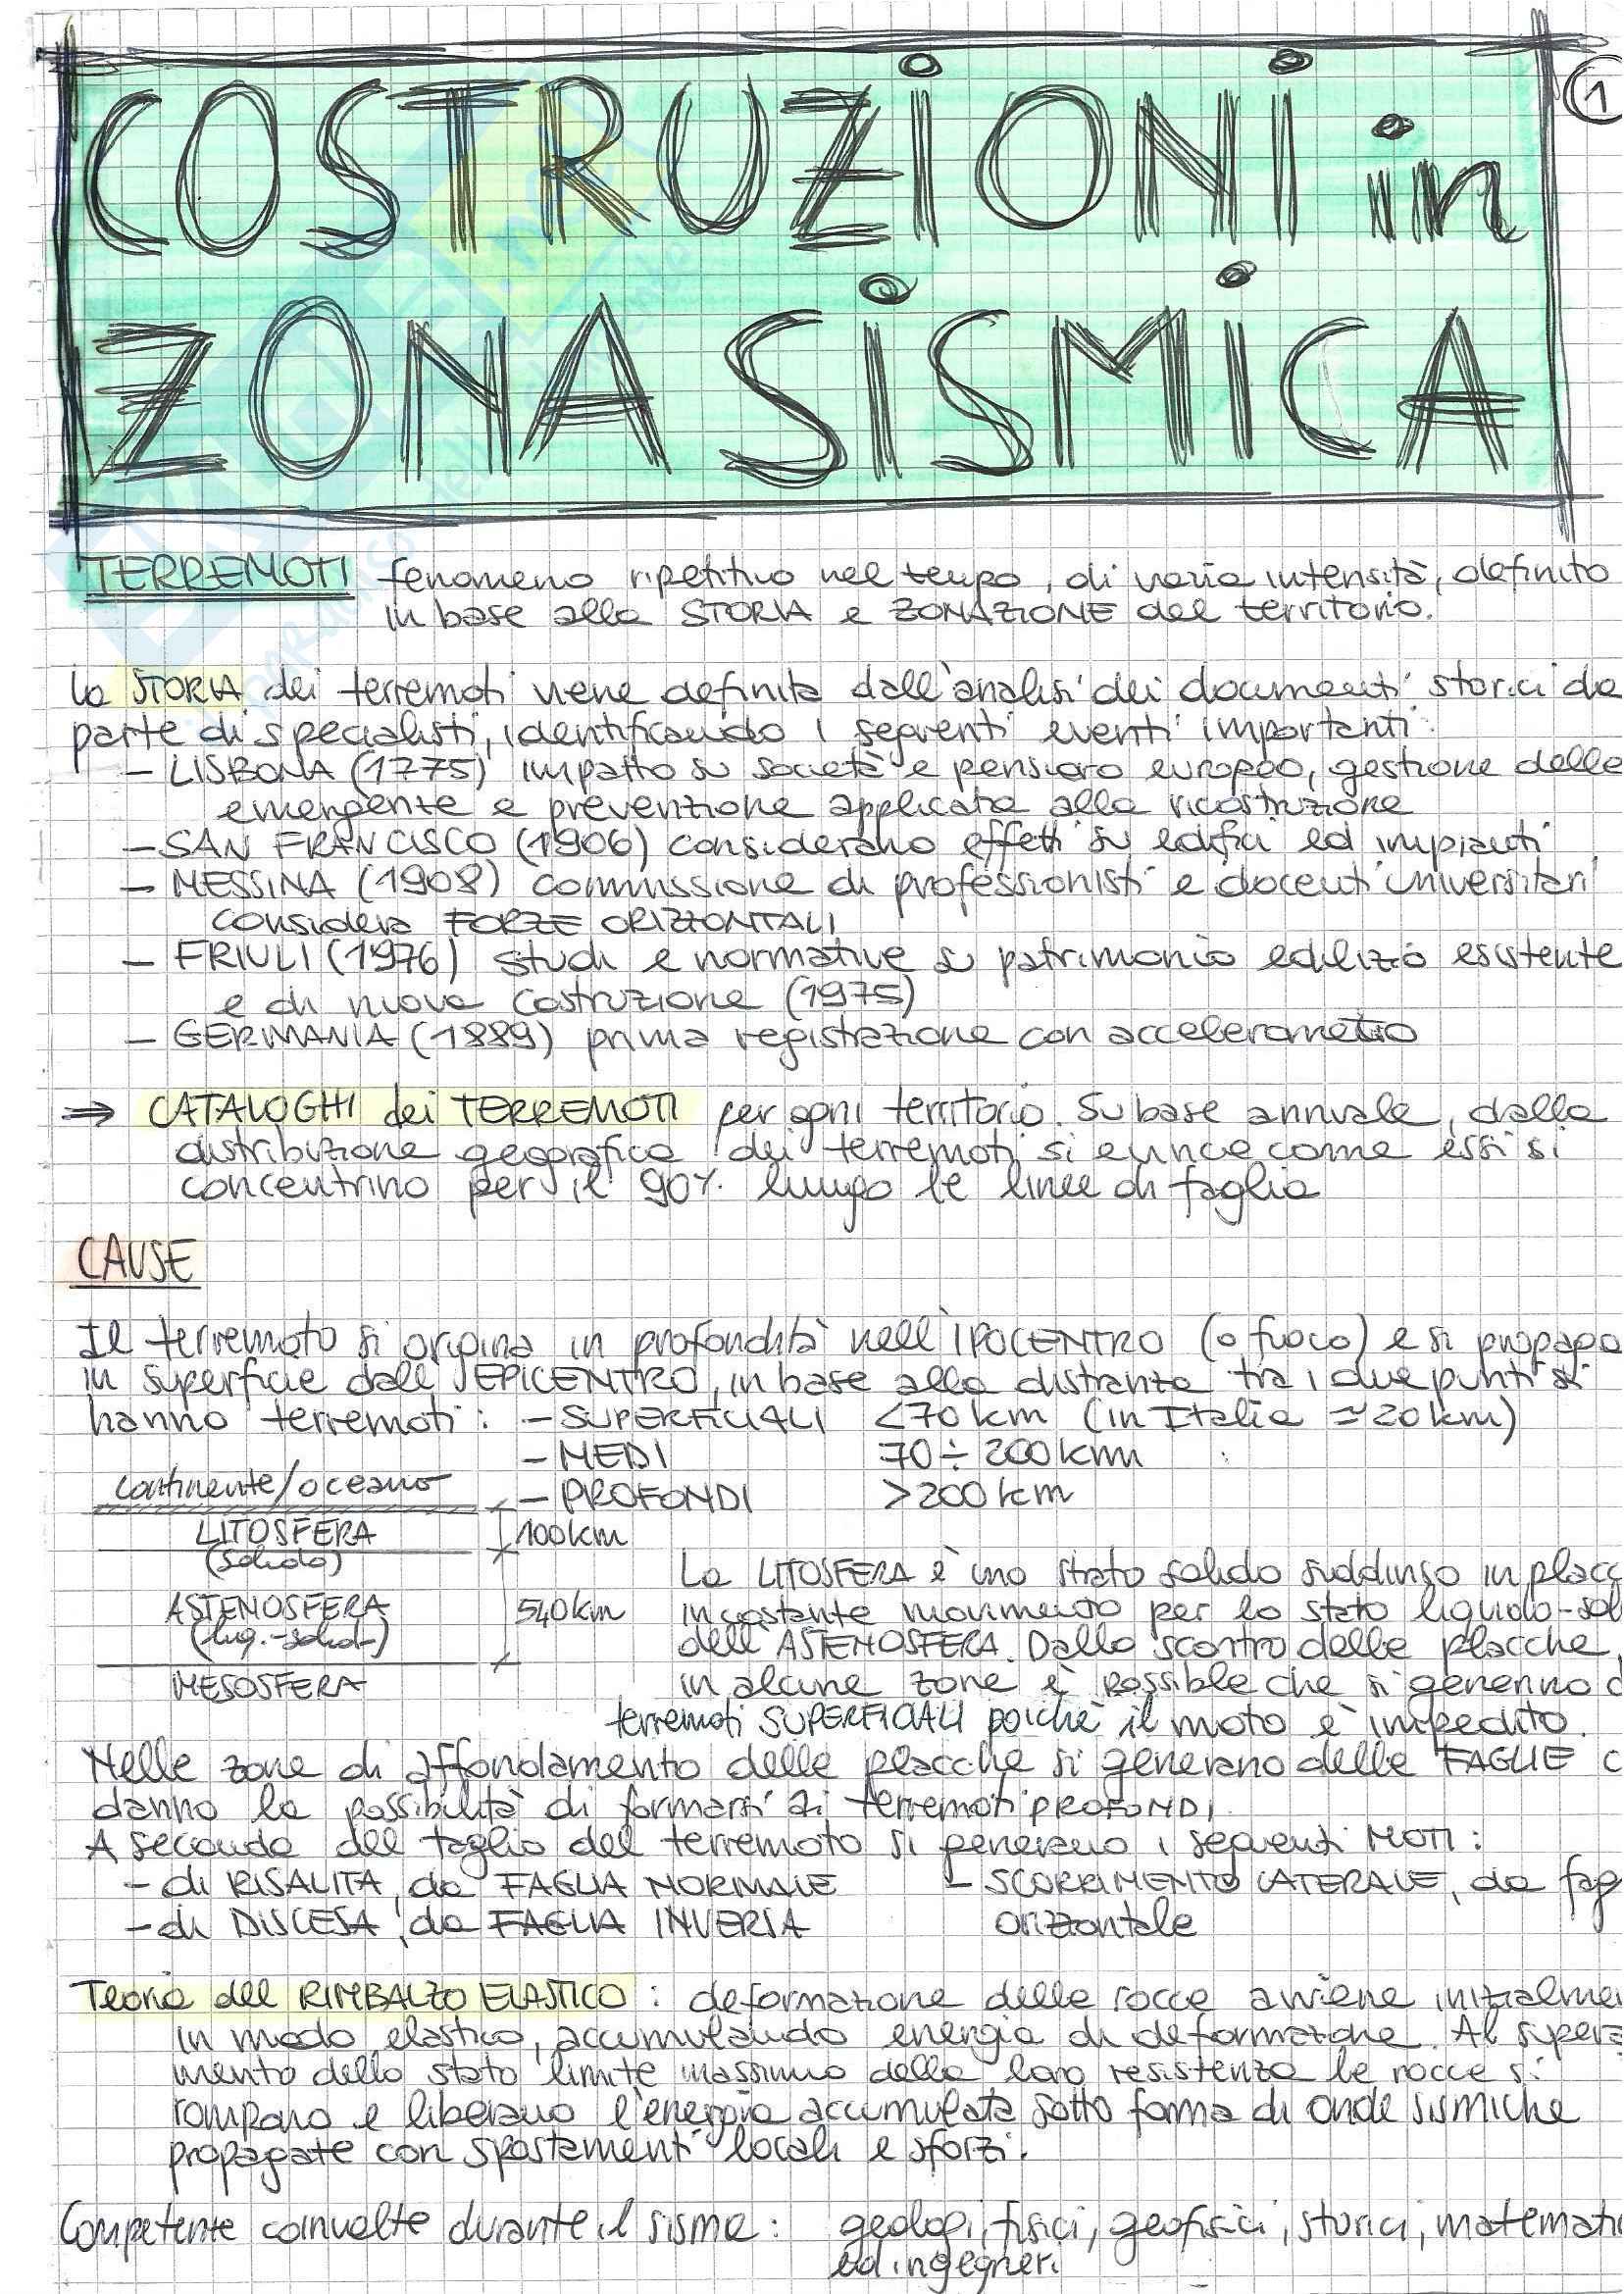 COSTRUZIONI in
1
ZONA SISMICA
TERREMOTI fenomeno ripetitivo nel tempo, di varia intensità, definito
in base alla STORIA e ZONAZIONE del territorio.
La STORIA dei terremoti viene definita dall'analisi dei documenti storici da
parte di specialisti, identificando i seguenti eventi importanti:
- LISBONA (1775) impatto su società e pensiero europeo, gestione delle
emergente e prevenzione applicata alla ricostruzione
- SAN FRANCISCO (1906) considerano effetti su edifici ed impianti
- MESSINA (1908) commissione di professionisti e docenti universitari
considera FORZE ORIZZONTALI
- FRIULI (1976) studi e normative su patrimonio edilizio esistente
e di nuova costruzione (1975)
- GERMANIA (1889) prima registrazione con accelerometro
⇒ CATALOGHI dei TERREMOTI per ogni territorio. Su base annuale, dalla
distribuzione geografica dei terremoti si evince come essi si
concentrino per il 90% lungo le linee di faglia
CAUSE
Il terremoto si origina in profondità nell'IPOCENTRO (o fuoco) e si propaga
in superficie dall'EPICENTRO, in base alla distanza tra i due punti si
hanno terremoti: - SUPERFICIALI <70 km (in Italia ≃20km)
- MEDI 70÷200km
continente/oceano - PROFONDI >200km
LITOSFERA 100km
(solido)
La LITOSFERA è uno strato solido suddiviso in placc
ASTENOSFERA 540km in costante movimento per lo stato liquido-sol
(liq.-solido) dell'ASTENOSFERA. Dallo scontro delle placche,
MESOSFERA in alcune zone è possibile che si generino d
terremoti SUPERFICIALI poichè il moto è impedito.
Nelle zone di affondamento delle placche si generano delle FAGLIE c
danno la possibilità di formarsi ai terremoti PROFONDI.
A seconda del taglio del terremoto si generano i seguenti MOTI:
- di RISALITA, da FAGLIA NORMALE - SCORRIMENTO LATERALE, da fag
- di DISCESA, da FAGLIA INVERSA orizzontale
Teoria del RIMBALZO ELASTICO: deformazione delle rocce avviene inizialme
in modo elastico, accumulando energia di deformazione. Al supera
mento dello stato limite massimo della loro resistenza le rocce si
rompono e liberano l'energia accumulata sotto forma di onde sismiche
propagate con spostamenti locali e sforzi.
Competente coinvolte durante il sisma: geologi, fisici, geofisici, storici, matemati
ed ingegneri